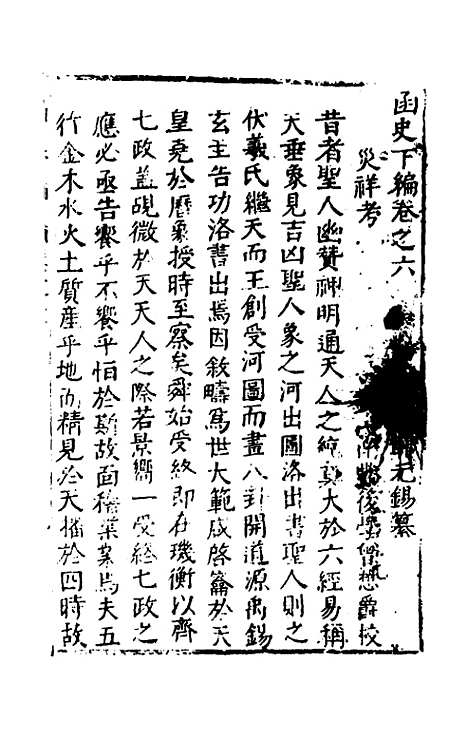 函史下編卷之六
元錫纂
災祥考
後學 懋爵校
昔者聖人幽贊神明通天人之 莫大於六經易稱
天垂象見吉凶聖人象之河出圖洛出書聖人則之
伏羲氏繼天而王創受河圖而畫八卦開道源禹錫
玄圭告功洛書出焉因敘疇為世大範咸啓籥於天
皇堯於曆象授時至察矣舜始受終即在璣衡以齊
七政蓋覘微於天天人之際若景嚮一受終七政之
應必亟告饗乎不饗乎怕於斯故面稽業業焉夫五
行金木水火土質產乎地而精見於天播於四時故